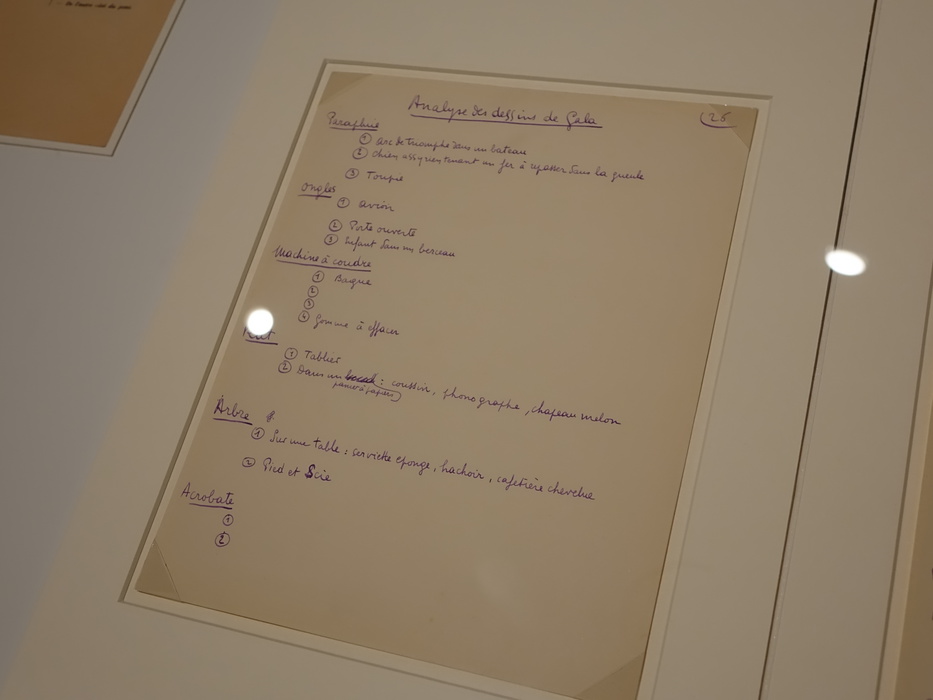 Analyse des dessins de Gala
26
Parapluie
① arc de triomphe dans un bateau
② chien assyrien tenant un fer à repasser dans la gueule
③ Toupie
Ongles
① avion
② Porte ouverte
③ Enfant dans un berceau
Machine à coudre
① Bague
②
③
④ Gomme à effacer
① Tablier
② Dans un : coussin, phonographe, chapeau melon
panier à papiers
Arbre
① Sur une table : serviette eponge, hachoir, cafetière chevelue
② Pied et Scie
Acrobate
①
②